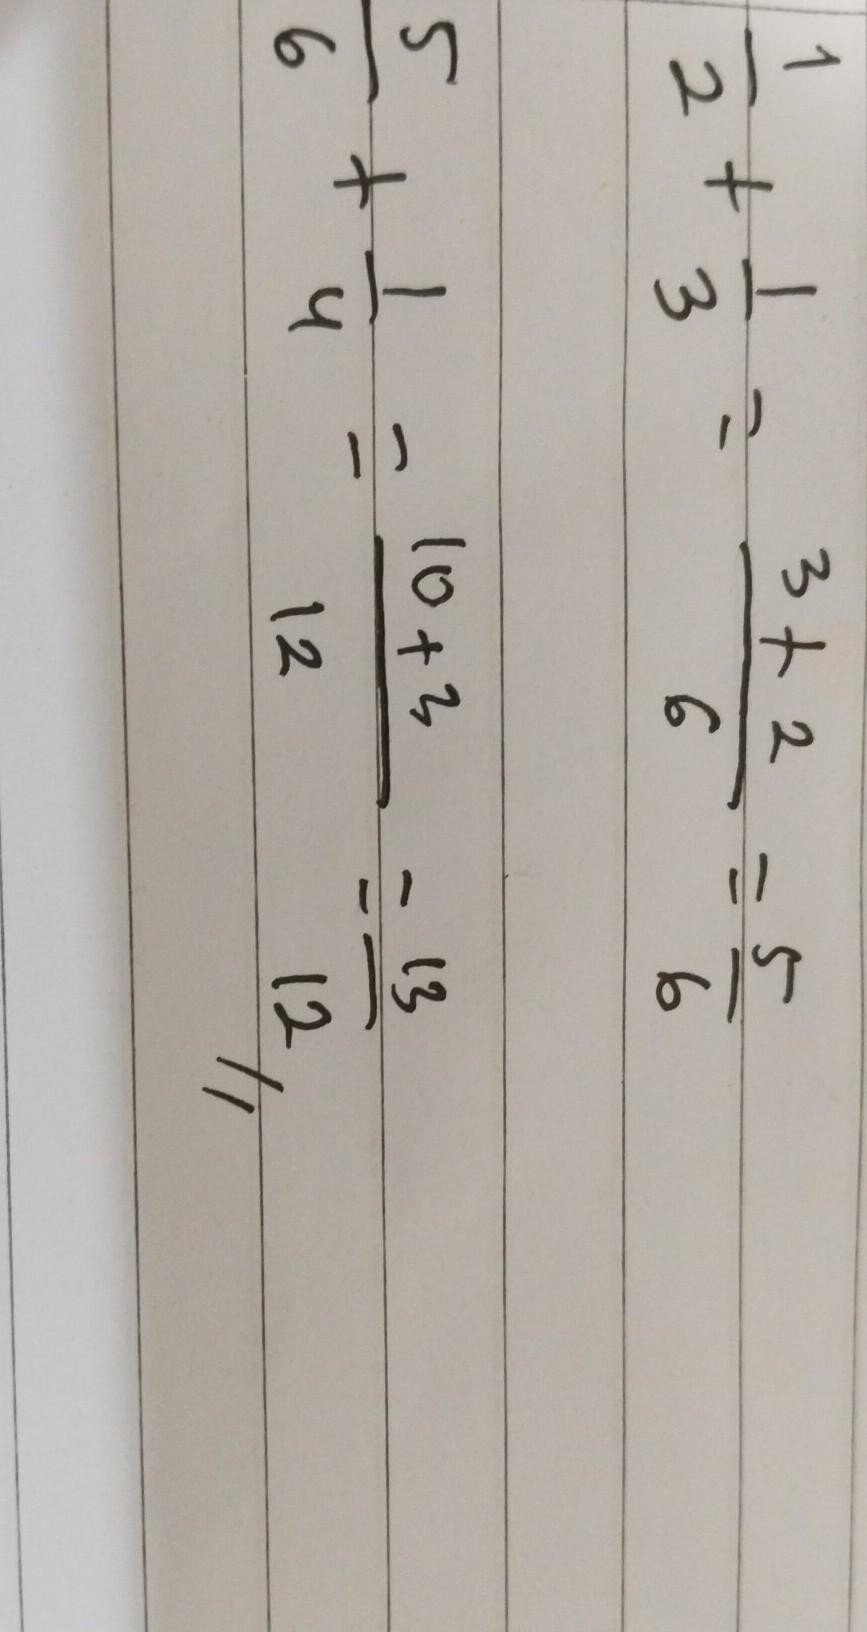 1/2 + 1/3 = (3+2)/6 = 5/6
5/6 + 1/4 = (10+3)/12 = 13/12 //